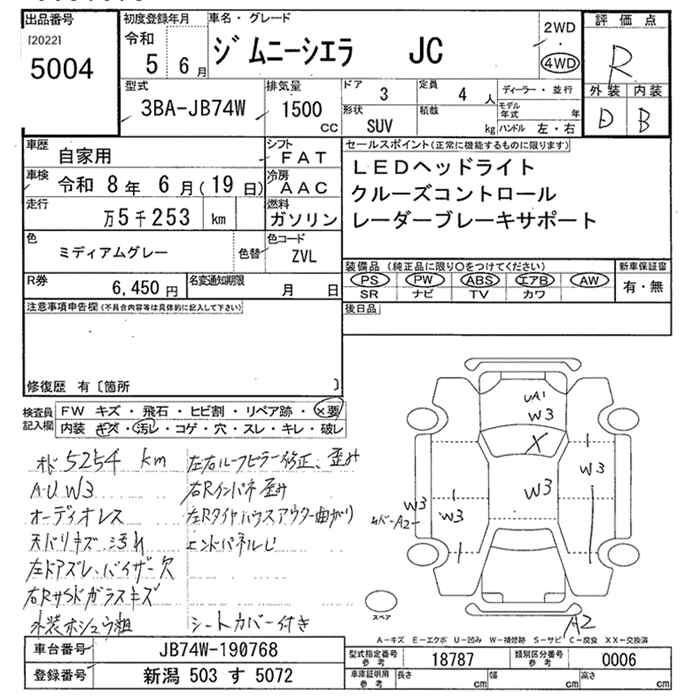 出品番号
[2022]
5004
初度登録年月
令和
5 6月
車名・グレード
ジムニーシエラ JC
2WD
4WD
評価点
R
外装 内装
D B
型式
3BA-JB74W
排気量
1500
CC
ドア 3
定員 4 人
形状 SUV
積載 kg
ディーラー・並行
モデル年式 年
ハンドル 左・右
車歴
自家用
シフト
FAT
車検
令和 8年 6月(19日)
冷房
AAC
走行
万5千253 km
燃料
ガソリン
色
ミディアムグレー
色替
色コード
ZVL
セールスポイント(正常に機能するものに限ります)
LEDヘッドライト
クルーズコントロール
レーダーブレーキサポート
R券
6,450円
名変通知期限
月 日
装備品 (純正品に限り○をつけてください)
PS PW ABS エアB AW
SR ナビ TV カワ
新車保証書
有・無
注意事項申告欄(不具合内容等は具体的に記入して下さい)
後日品
修復歴 有〔箇所 〕
検査員記入欄
FW キズ・飛石・ヒビ割・リペア跡・×要
内装 キズ・汚レ・コゲ・穴・スレ・キレ・破レ
オド 5254 km
AU W3
オーディオレス
天バリキズ 汚れ
左ドアズレ、バイザー欠
右RサSドガラスキズ
外装ホシュウ粗
左右ルーフピラー修正、歪み
右Rインパネ歪み
左Rタイヤハウスアウター曲がり
エンドパネルし
シートカバー付き
UA1
W3
X
W3
W3
W3
W3
A2
A2
スペア
A-キズ E-エクボ U-凹み W-補修跡 S-サビ C-腐食 XX-交換済
車台番号
JB74W-190768
登録番号
新潟 503 す 5072
型式指定番号
参考
18787
類別区分番号
参考
0006
車庫証明用
参考
長さ cm
幅 cm
高さ cm